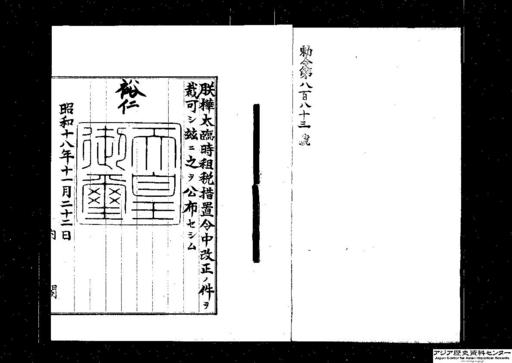 勅令第八百八十三號
朕樺太臨時租税措置令中改正ノ件ヲ
裁可シ玆ニ之ヲ公布セシム
裕仁
天皇
御璽
昭和十八年十一月二十二日
内閣
アジア歴史資料センター
Japan Center for Asian Historical Records